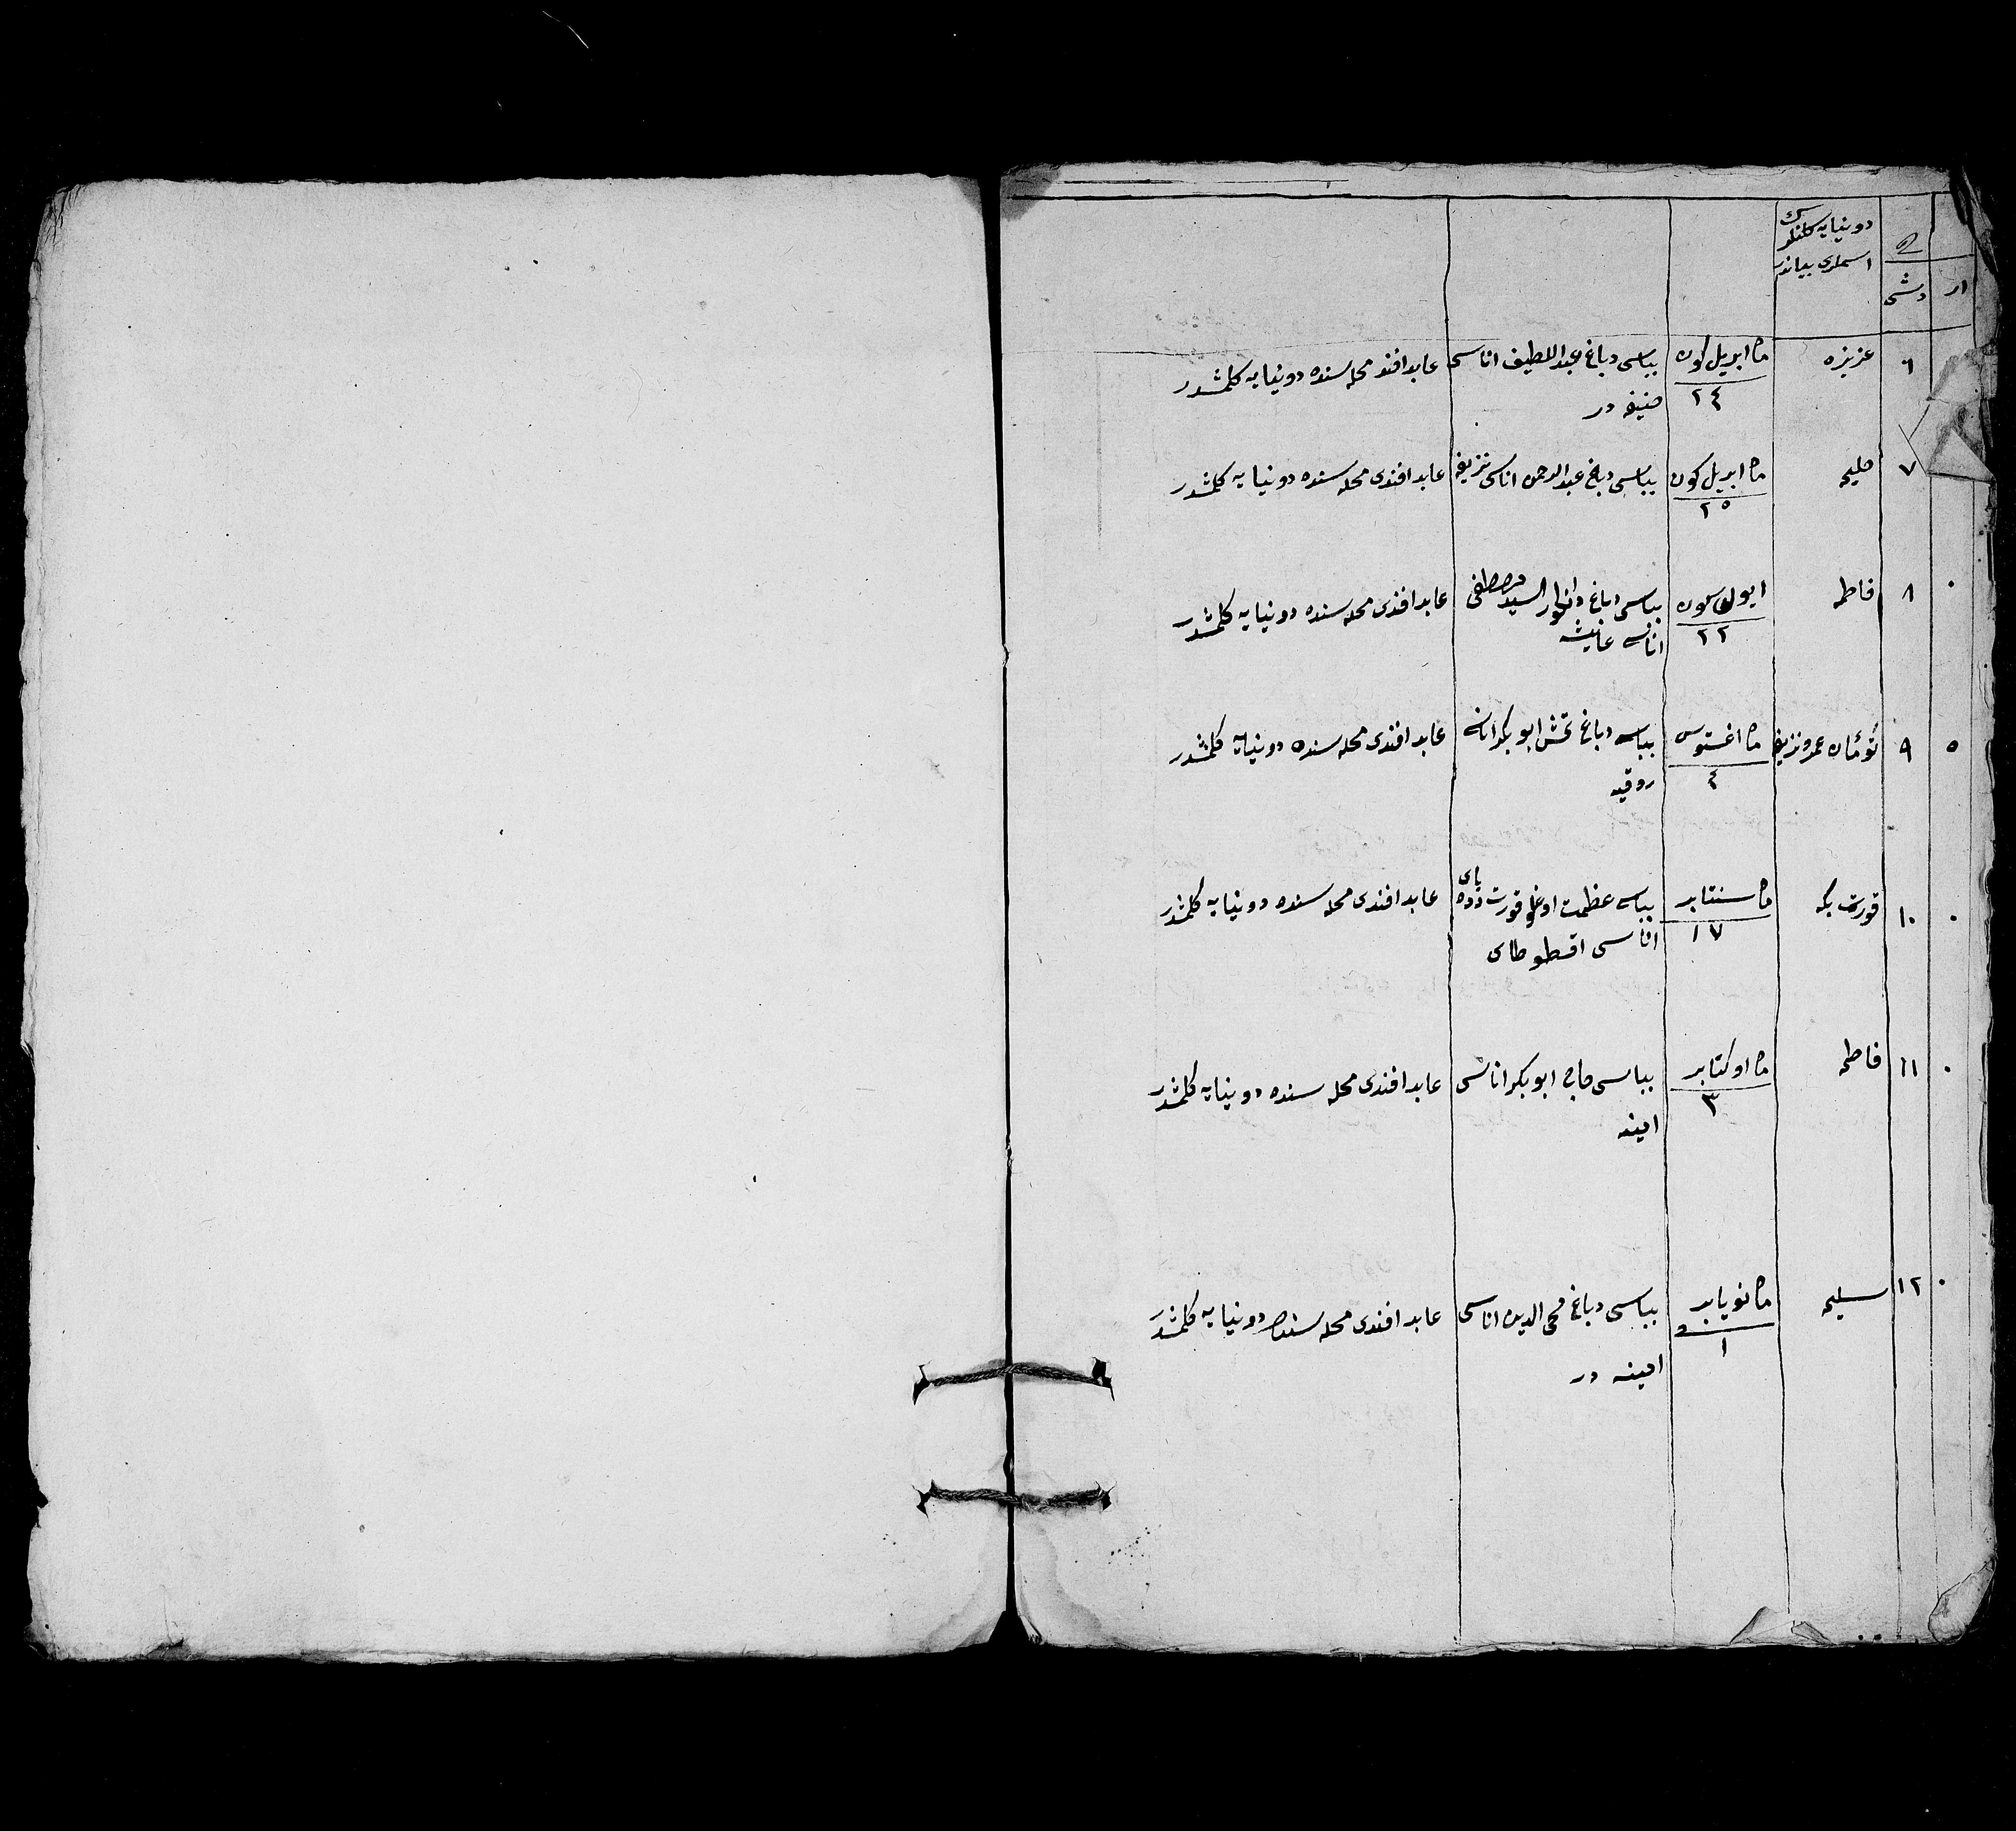 دونیایه کلنلرك
اسملری بیاندر
ار
دشی
٦ عزیزه ماه ابریل کون ٢٤ بباسی دباغ عبداللطیف اناسی عابد افند محله سنده دونیایه کلمشدر
حنیفه در
٧ حلیمه ماه ابریل کون ٢٥ بباسی دباغ عبدالرحمن اناسی نزیفه عابد افندی محله سنده دونیایه کلمشدر
٨ فاطمه ایول کون ٢٢ بباسی دباغ السید مصطفی عابد افندی محله سنده دونیایه کلمشدر
اناسی عایشه
٩ تؤمان عمر و نزیفه ماه اغستوس ٤ بباسی دباغ ابو بکر اناسی عابد افندی محله سنده دونیایه کلمشدر
روقیه
١٠ قورت بکه ماه سنتابر ١٧ بباسی عظمت اوغلو قورت دده بای عابد افندی محله سنده دونیایه کلمشدر
اناسی اقطوطای
١١ فاطمه ماه اوکتابر ٣ بباسی حاجی ابو بکر اناسی عابد افندی محله سنده دونیایه کلمشدر
امینه
١٢ سلیمه ماه نویابر ١ بباسی دباغ محی الدین اناسی عابد افندی محله سنده دونیایه کلمشدر
امینه در